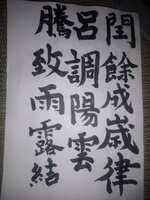 閏餘成歲律
呂調陽雲
騰致雨露結